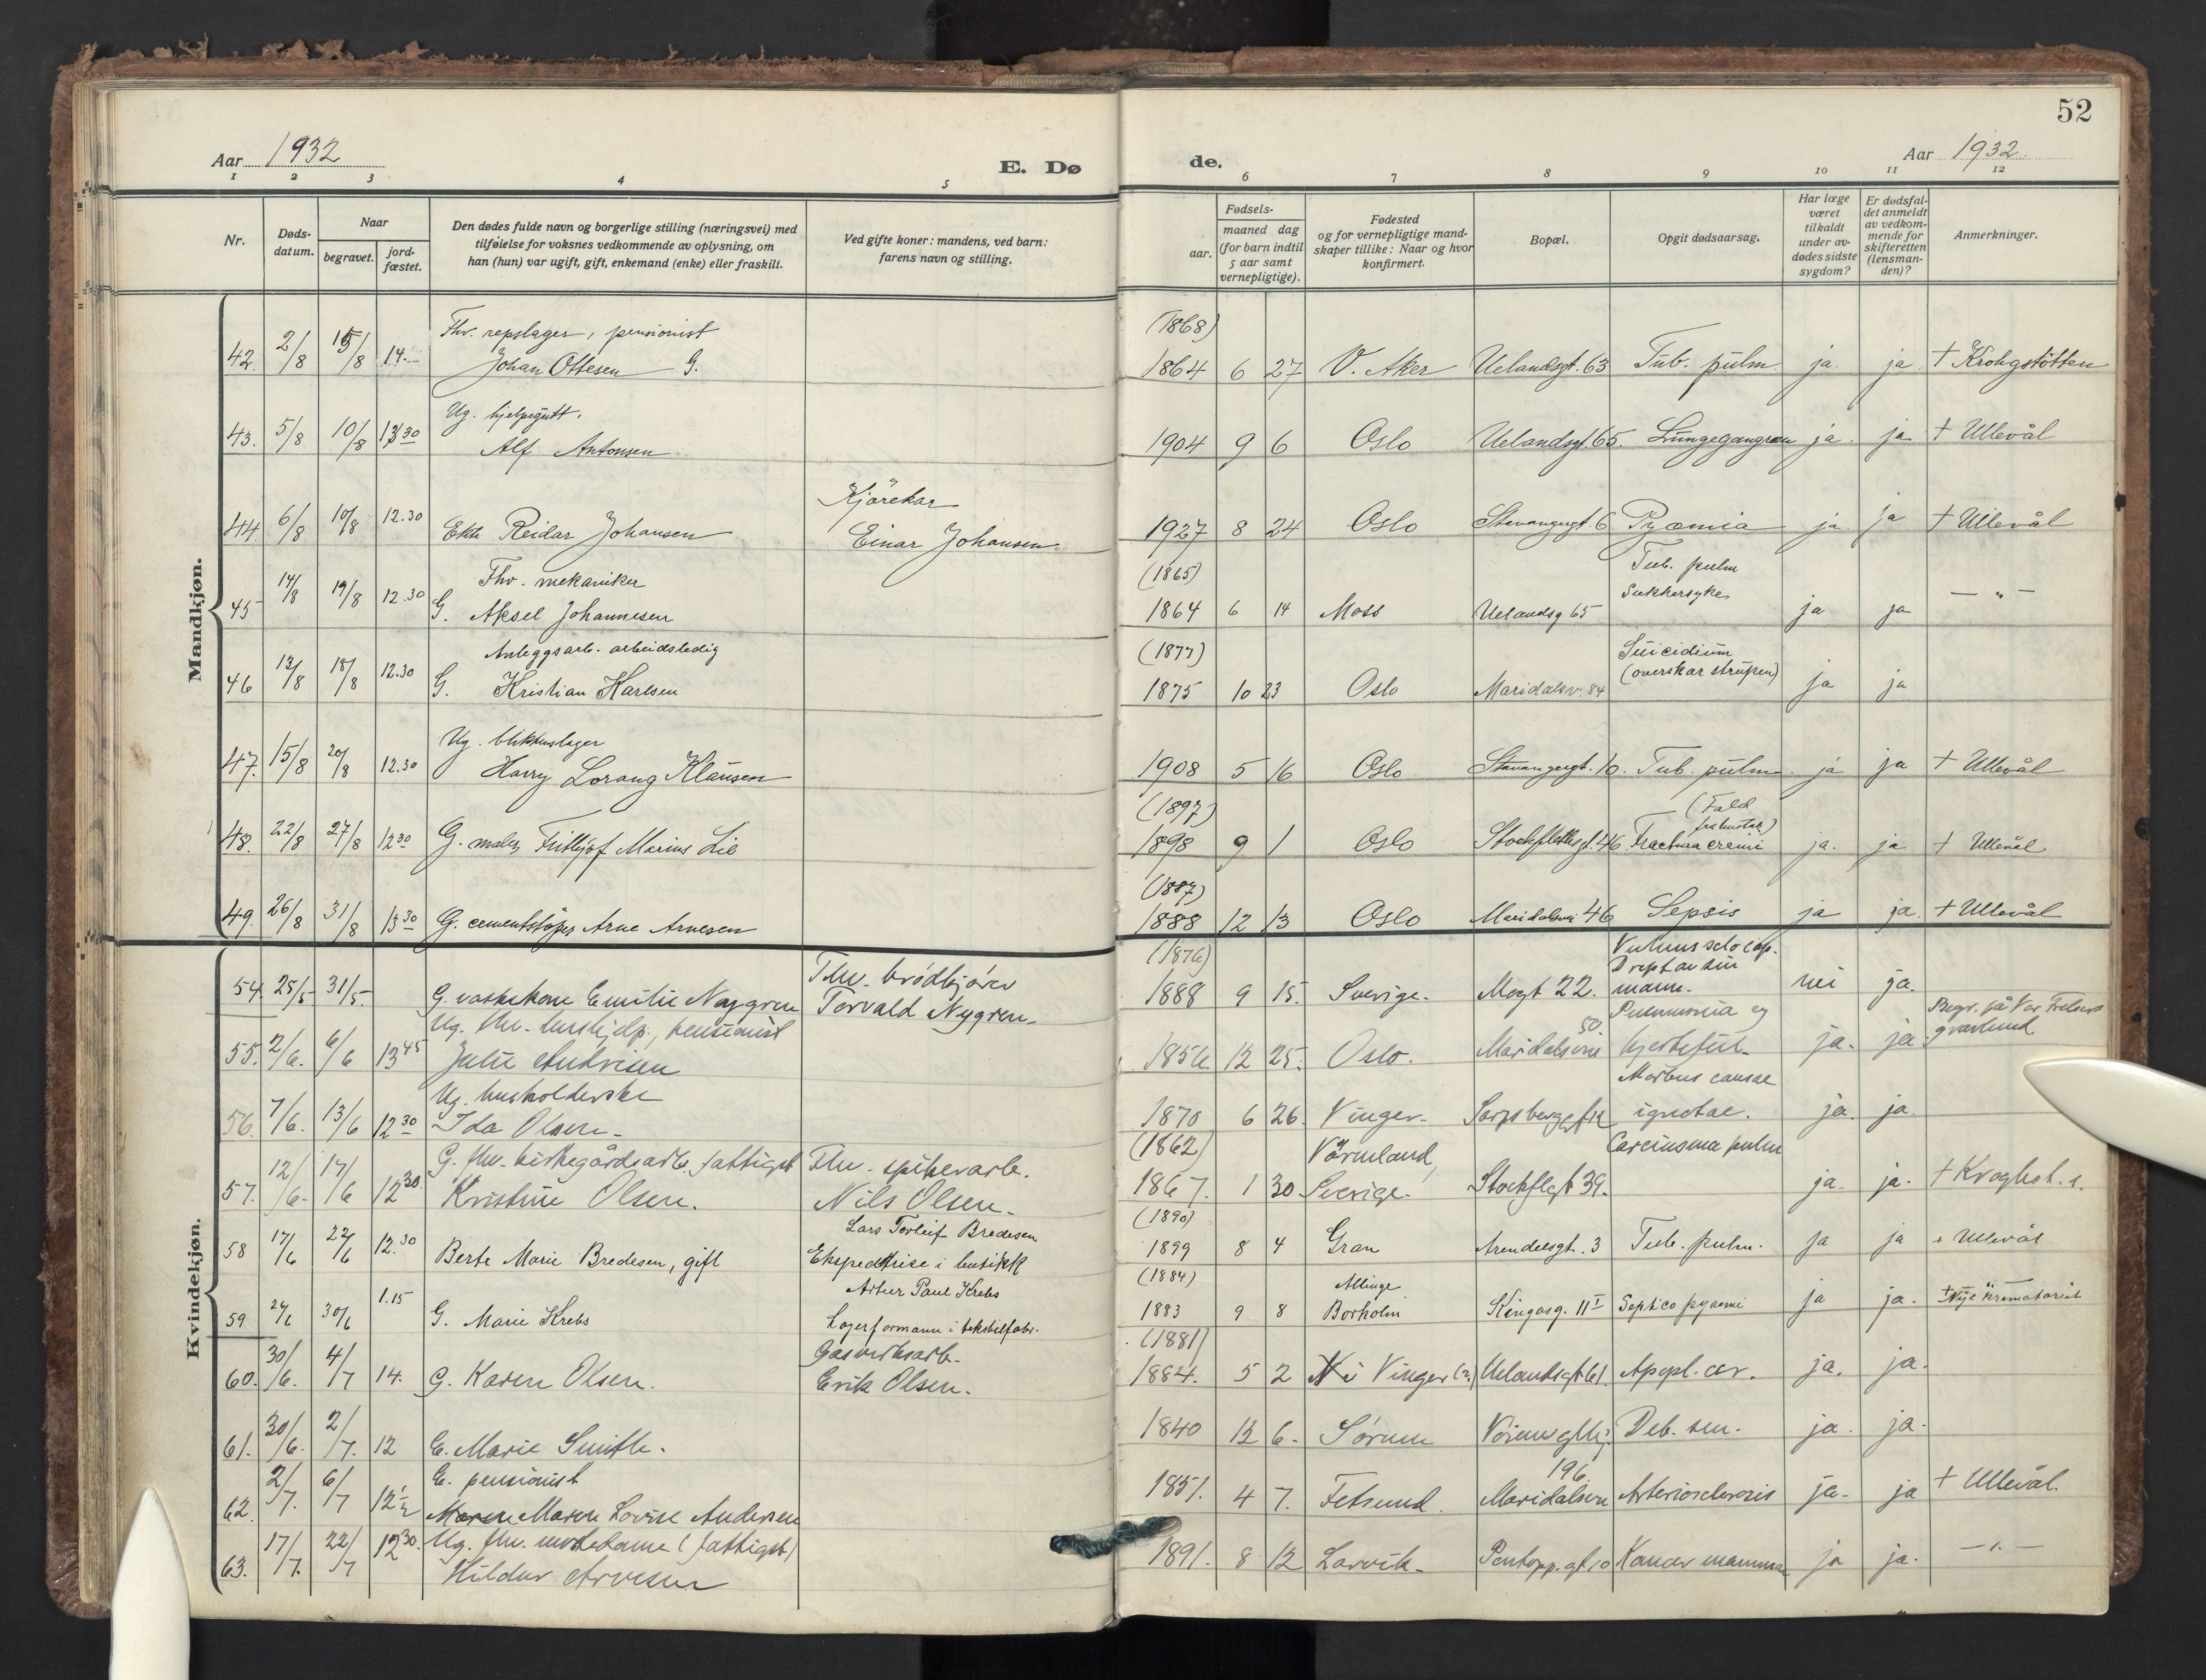 52
Aar 1932
E. Dø de.
Aar 1932.
1 2 3 4 5 6 7 8 9 10 11 12
Nr.
Døds-
datum.
Naar
begravet.
jord-
fæstet.
Den dødes fulde navn og borgerlige stilling (næringsvei) med
tilføielse for voksnes vedkommende av oplysning, om
han (hun) var ugift, gift, enkemand (enke) eller fraskilt.
Ved gifte koner: mandens, ved barn:
farens navn og stilling.
Fødsels-
aar.
maaned dag
(for barn indtil
5 aar samt
vernepligtige).
Fødested
og for vernepligtige mand-
skaper tillike: Naar og hvor
konfirmert.
Bopæl.
Opgit dødsaarsag.
Har læge
været
tilkaldt
under av-
dødes sidste
sygdom?
Er dødsfal-
det anmeldt
av vedkom-
mende for
skifteretten
(lensman-
den)?
Anmerkninger.
Mandkjøn.
Fhv. repslager, pensionist (1868)
42. 2/8 15/8 14.- Johan Ottesen G. 1864 6 27 V. Aker Uelandsgt. 63 Tub. pulm. ja. ja + Krohgstøtten
Ug. hjelpegutt.
43. 5/8 10/8 13 30 Alf Antonsen 1904 9 6 Oslo Uelandsgt. 65. Lungegangræn ja. ja. + Ullevål
Kjørekar
44. 6/8 10/8 12.30 Ekte Reidar Johansen Einar Johansen 1927 8 24 Oslo Stavangergt. 6 Pyæmia ja. ja + Ullevål
Fhv. mekaniker (1865) Tub. pulm
45 14/8 19/8 12.30 G. Aksel Johannesen 1864 6 14 Moss Uelandsg 65 Sukkersyke ja ja — " —
Anleggsarb. arbeidsledig (1877) Suicidium
46 13/8 18/8 12.30 G. Kristian Karlsen 1875 10 23 Oslo Maridalsv. 84 (overskar strupen) ja ja
Ug. blikkenslager
47. 15/8 20/8 12.30 Harry Lorang Klausen 1908 5 16 Oslo Stavangergt. 10. Tub. pulm. ja ja + Ullevål
(1897) (Fald
48. 22/8 27/8 12 30 G. maler Fritjof Marius Lie 1898 9 1 Oslo Stockflethsgt. 46 Fractura cranii ja. ja + Ullevål
(1887)
49. 26/8 31/8 13 30 G. cementstøper Arne Arnesen 1888 12 13 Oslo Maridalsvei 46 Sepsis ja ja. + Ullevål
Kvindekjøn.
Fhv. brødkjører (1876) Drept av sin
54. 25/5 31/5 G. vaskekone Emilie Nygren Torvald Nygren. 1888 9 15. Sverige. 22. mann. nei ja.
Ug. fhv. hushjelp., pensionist 50. Pneumonia og Begr. på Vor Frelsers
55. 2/6. 6/6 13 45 Julie 1856. 12 25. Oslo. Maridalsvei ja. ja gravlund.
Ug. husholderske Morbus causae
56. 7/6. 13/6 12 30 Ida Olsen. 1870 6 26. Vinger. Sarpsborggt. ignotae. ja. ja.
G. fhv. kirkegårdsarb. fattigst Fhv. spikerarb. (1862) Värmland, Carcinoma pulm
57. 12/6. 17/6 12 30. Kristine Olsen. Nils Olsen. 1867. 1 30 Sverige. Stockflgt 39. ja. ja. + Kroghst.
Lars Torleif Bredesen (1890)
58 17/6 22/6 12.30 Berte Marie Bredesen, gift Ekspeditrise i butikk 1899 8 4 Gran Arendalsgt. 3 Tub. pulm. ja ja + Ullevål
1.15 Artur Paul Krebs (1884) Allinge
59 24/6 30/6 G. Marie Krebs Lagerformann i tekstilfabr. 1883 9 8 Borholm Kingosg. 11 I Septico pyaemi ja ja. + Nye krematoriet
Gasverksarb. (1881)
60. 30/6. 4/7 14. G. Karen Olsen. Erik Olsen. 1884. 5 2 Vinger (?) Uelandsgt 61. Apopl. cer. ja. ja.
61. 30/6. 2/7. 12 E. Marie Smith. 1840 12 6. Sørum Deb. sen. ja. ja.
E. pensionist 196.
62. 2/7. 6/7 12 1/2 Maren Lovise Andersen 1851. 4 7. Fetsund. Maridalsvei Arteriosclerosis ja. ja + Ullevål.
Ug. fhv. motedame (fattigst)
63. 17/7. 22/7 12 30. Hildur Arvesen 1891. 8 12 Larvik. Pontopp.gt 10 Kancer mammae ja ja. — " —